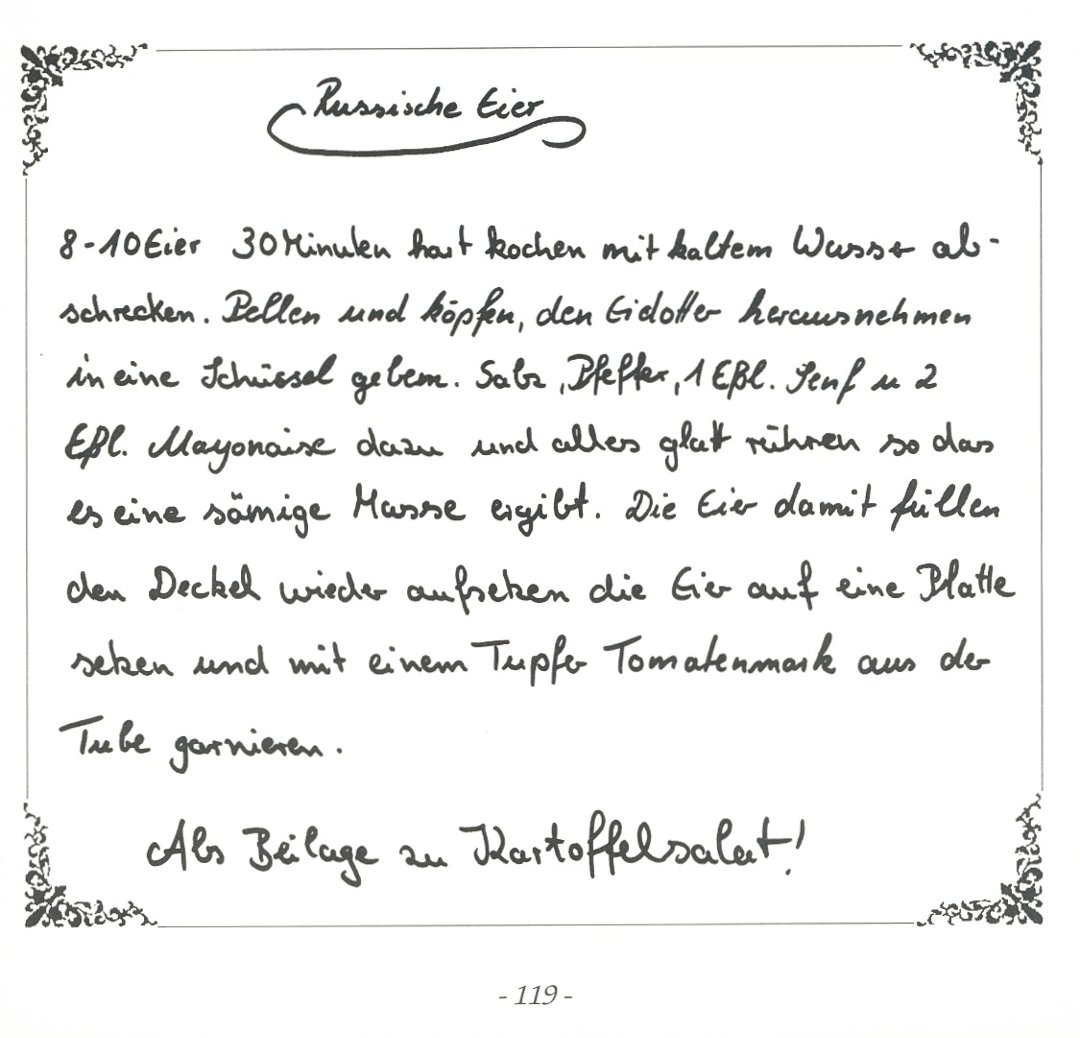 Russische Eier
8-10 Eier 30 Minuten hart kochen mit kaltem Wasser ab-
schrecken. Pellen und köpfen, den Eidotter herausnehmen
in eine Schüssel geben. Salz, Pfeffer, 1 Eßl. Senf u 2
Eßl. Mayonaise dazu und alles glatt rühren so das
es eine sämige Masse ergibt. Die Eier damit füllen
den Deckel wieder aufsetzen die Eier auf eine Platte
setzen und mit einem Tupfer Tomatenmark aus der
Tube garnieren.
Als Beilage zu Kartoffelsalat!
- 119 -